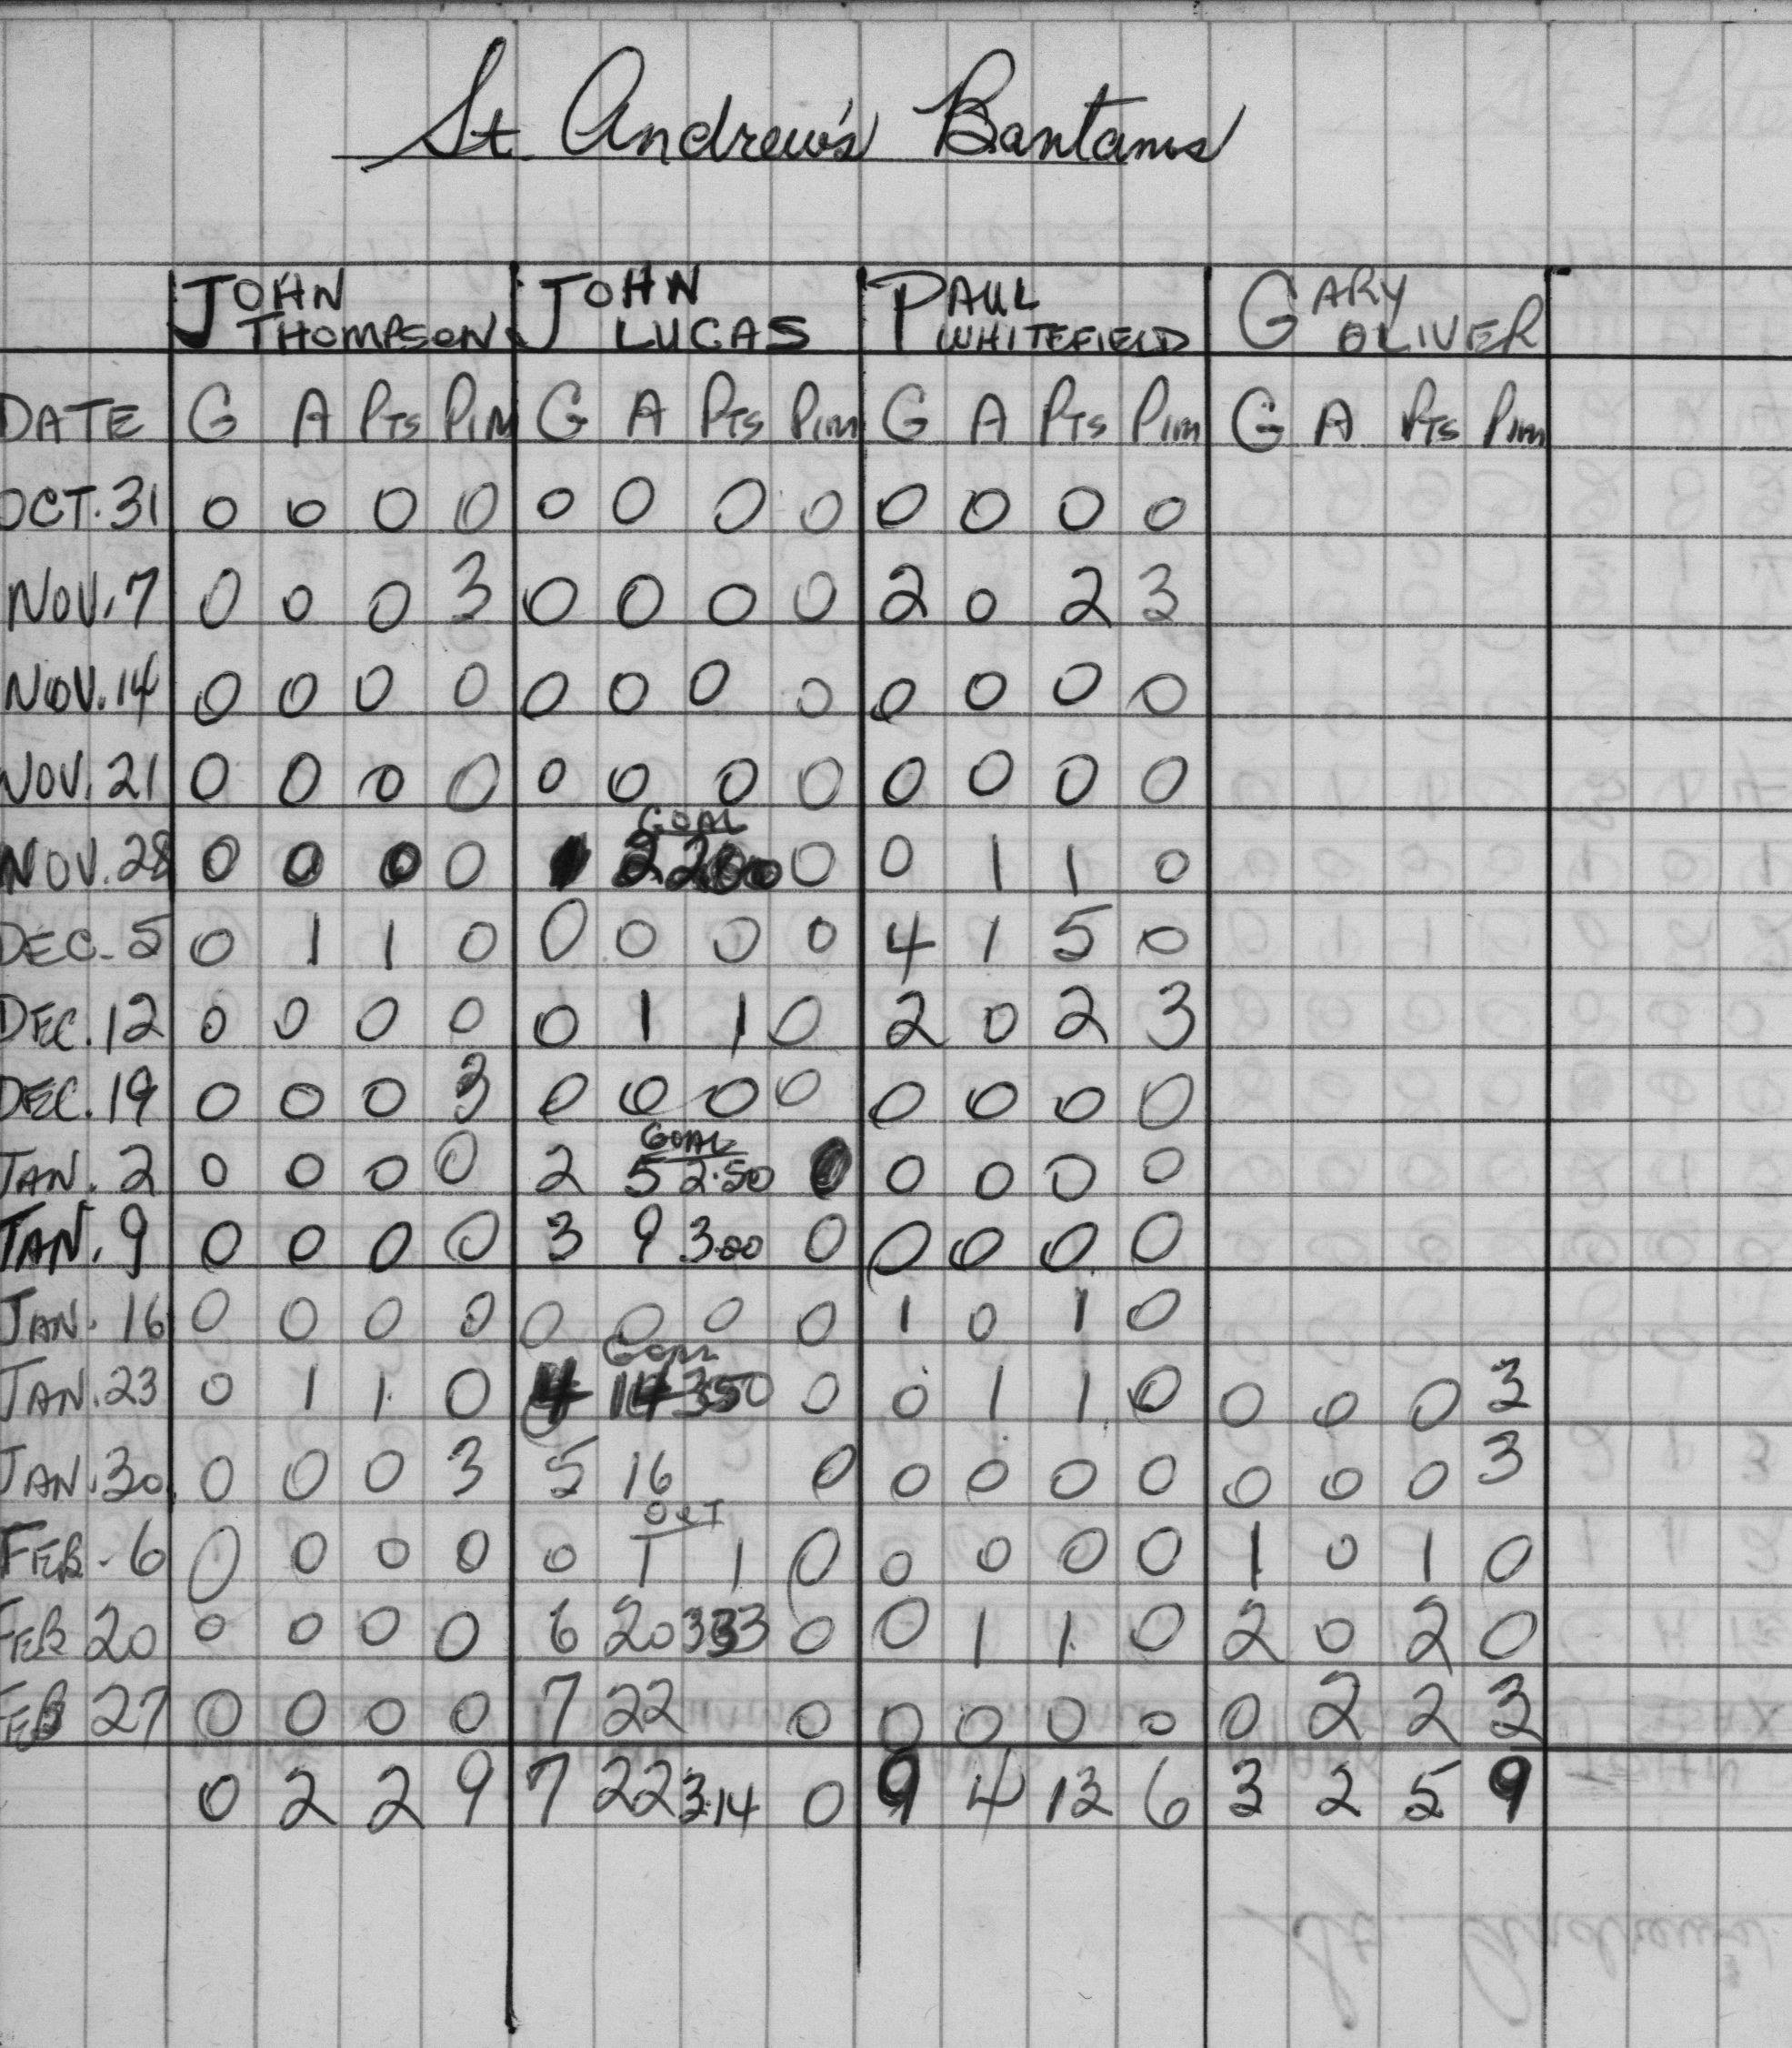 St. Andrew's Bantams
JOHN THOMPSON JOHN LUCAS PAUL WHITEFIELD GARY OLIVER
DATE G A PTS PIM G A PTS PIM G A PTS PIM G A PTS PIM
OCT. 31 0 0 0 0 0 0 0 0 0 0 0 0
NOV. 7 0 0 0 3 0 0 0 0 2 0 2 3
NOV. 14 0 0 0 0 0 0 0 0 0 0 0 0
NOV. 21 0 0 0 0 0 0 0 0 0 0 0 0
GOAL
NOV. 28 0 0 0 0 1 2 2.00 0 0 1 1 0
DEC. 5 0 1 1 0 0 0 0 0 4 1 5 0
DEC. 12 0 0 0 0 0 1 1 0 2 0 2 3
DEC. 19 0 0 0 3 0 0 0 0 0 0 0 0
GOAL
JAN. 2 0 0 0 0 2 5 2.50 0 0 0 0 0
JAN. 9 0 0 0 0 3 9 3.00 0 0 0 0 0
JAN. 16 0 0 0 0 0 0 0 0 1 0 1 0
GOAL
JAN. 23 0 1 1 0 4 14 350 0 0 1 1 0 0 0 0 3
JAN. 30 0 0 0 3 5 16 0 0 0 0 0 0 0 0 3
OUT
FEB. 6 0 0 0 0 0 1 1 0 0 0 0 0 1 0 1 0
FEB 20 0 0 0 0 6 20 333 0 0 1 1 0 2 0 2 0
FEB 27 0 0 0 0 7 22 0 0 0 0 0 0 2 2 3
0 2 2 9 7 22 3.14 0 9 4 13 6 3 2 5 9